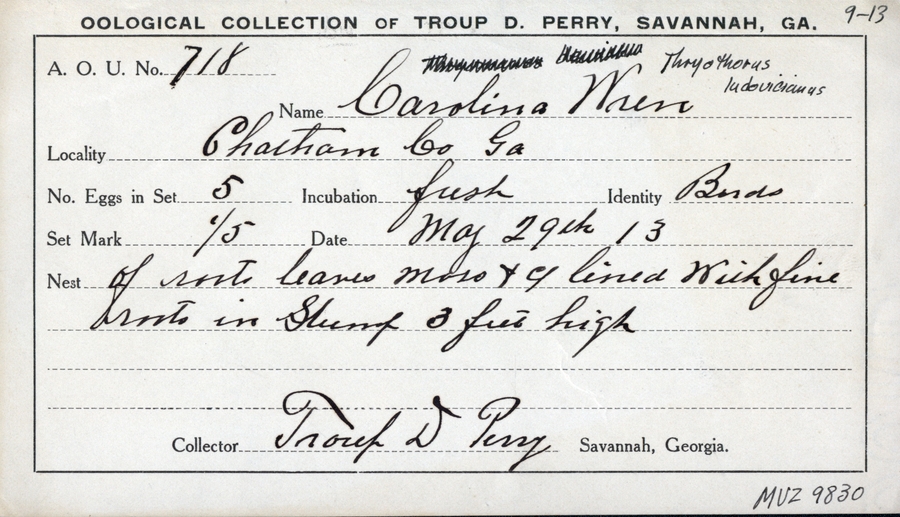 OOLOGICAL COLLECTION OF TROUP D. PERRY, SAVANNAH, GA.
9-13
A. O. U. No. 718
Thryothorus
ludovicianus
Name Carolina Wren
Locality Chatham Co Ga
No. Eggs in Set 5 Incubation fresh Identity Birds
Set Mark 1/5 Date May 29th 13
Nest of roots leaves moss & c lined With fine
roots in Stump 3 feet high
Collector Troup D Perry Savannah, Georgia.
MVZ 9830